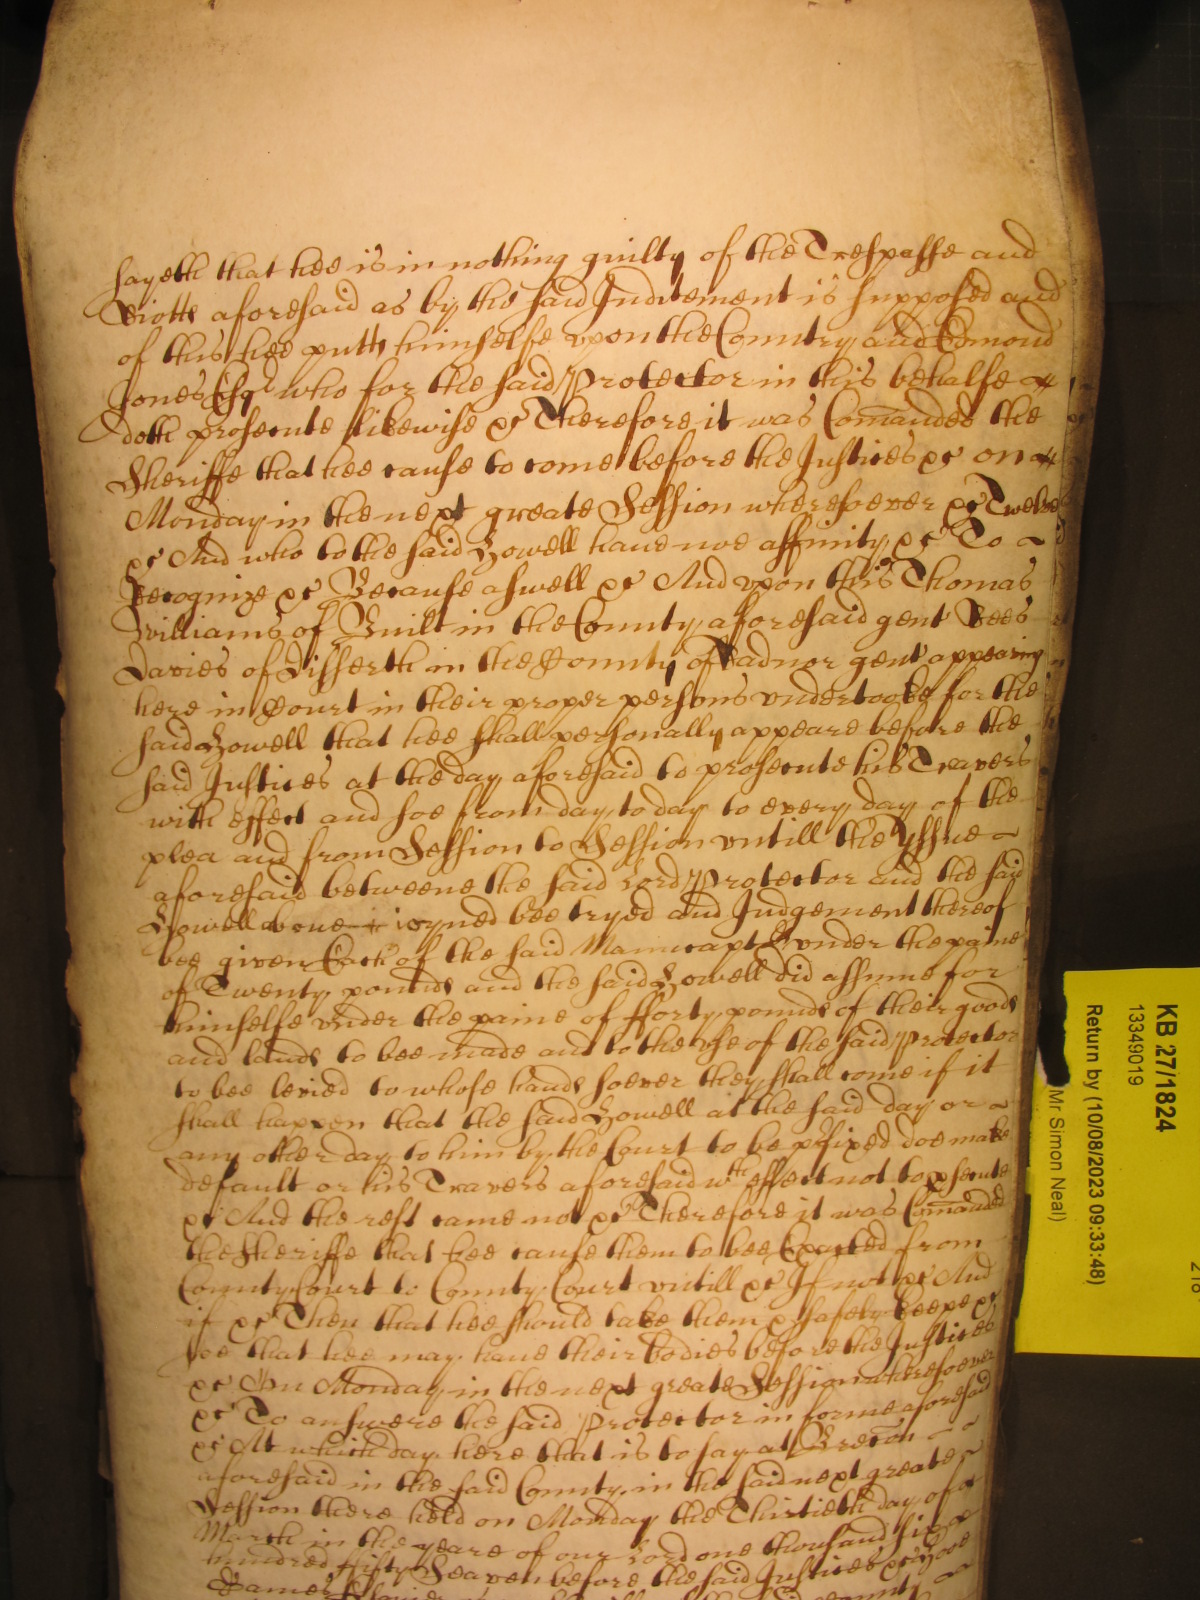 sayeth that hee is in nothing guilty of the Trespasse and
Riotts aforesaid as by the said Inditement is supposed and
of this hee putts himselfe vpon the Country and Edmond
Jones Esqr who for the said Protector in this behalfe
doth prosecute likewise &c Therefore it was Comanded the
Sheriffe that hee cause to come before the Justices &c on
Monday in the next greate Session wheresoever &c Twelve
&c And who to the said Howell haue noe affinity &c To
Recognize &c Because aswell &c And vpon this Thomas
Williams of Built in the County aforesaid gent Rees
Davies of Disserth in the County of Radnor gent appearing
here in Court in their proper persons vndertooke for the
said Howell that hee shall personally appeare before the
said Justices at the day aforesaid to prosecute his Travers
with effect and soe from day to day to every day of the
plea and from Session to Session vntill the Yssue
aforesaid betweene the said Lord Protector and the said
Howell aboue ioyned bee tryed and Judgement thereof
bee given Each of the said Mainecapt vnder the paine
of Twenty pounds and the said Howell did assume for
himselfe vnder the paine of fforty pounds of their goods
and lands to bee made and to the vse of the said Protector
to bee levied to whose hands soever they shall come if it
shall happen that the said Howell at the said day or
any other day to him by the Court to be pfixed doe make
default or his Travers aforesaid wth effect not to psecute
&c And the rest came not &c Therefore it was Comanded
the Sheriffe that hee cause them to bee Exacted from
County Court to County Court vntill &c If not &c And
if &c Then that hee should take them & safely keepe &c
soe that hee may haue their bodies before the Justices
&c On Monday in the next greate Session wheresoever
&c To answere the said Protector in forme aforesaid
&c At which day here that is to say at Brecon
aforesaid in the said County in the said next greate
Session there held on Monday the Thirtieth day of
March in the yeare of our Lord one thousand six
hundred ffifty Seaven before the said Justices &c
James
KB 27/1824
13349019
Return by (10/08/2023 09:33:48)
Mr Simon Neal)
218